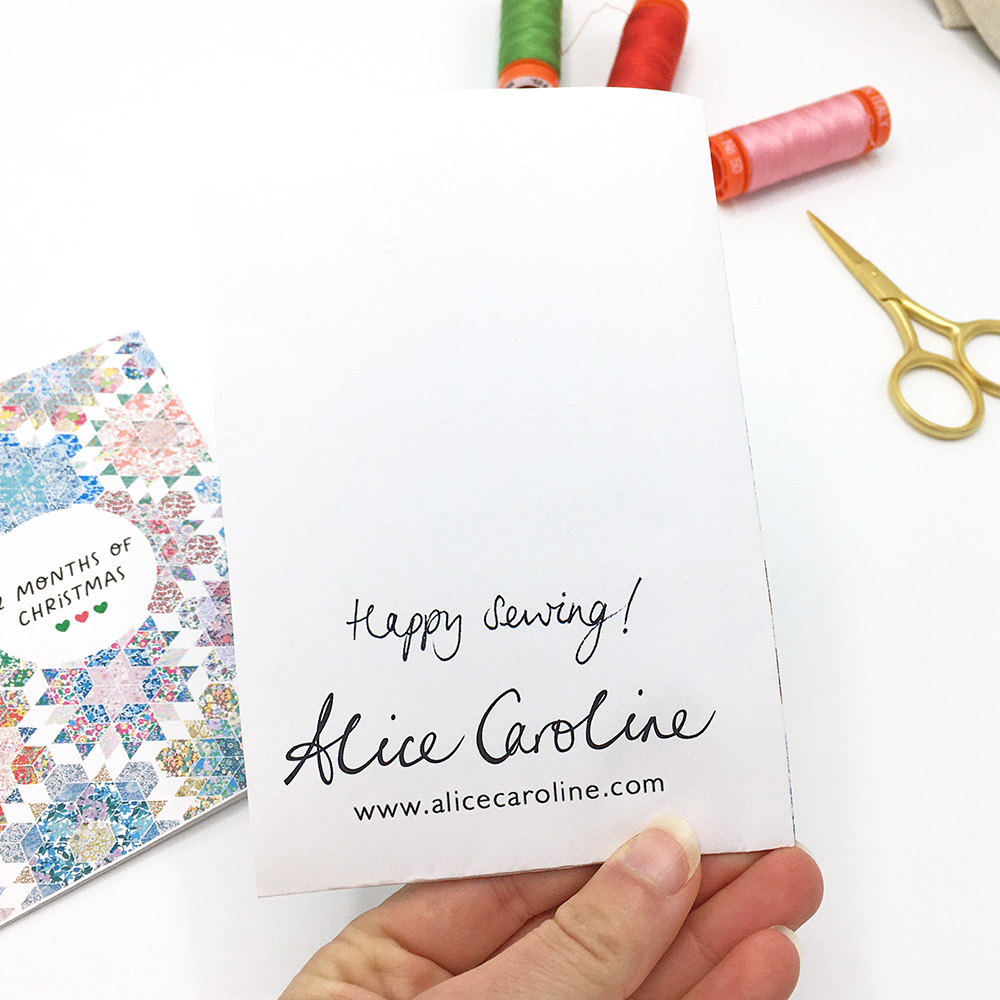 Happy Sewing!
Alice Caroline
www.alicecaroline.com
MONTHS OF
CHRISTMAS
ITALY